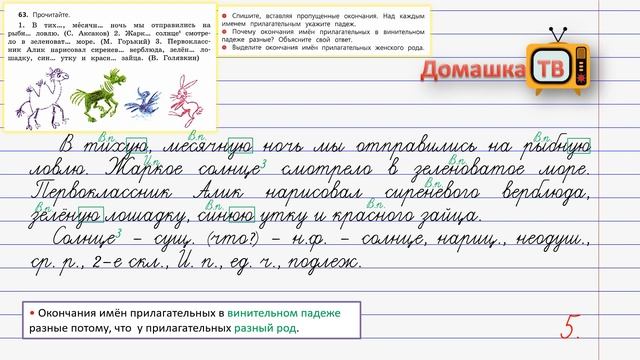 63. Прочитайте.
1. В тих..., ме́сячн... ночь мы отправились на
рыбн... ловлю. (С. Аксаков) 2. Жарк... солнце³ смотре-
ло в зеленоват... море. (М. Горький) 3. Первокласс-
ник Алик нарисовал сиренев... верблюда, зелён... ло-
шадку, син... утку и красн... зайца. (В. Голявкин)
● Спишите, вставляя пропущенные окончания. Над каждым
именем прилагательным укажите падеж.
● Почему окончания имён прилагательных в винительном
падеже разные? Объясните свой ответ.
● Выделите окончания имён прилагательных женского рода.
Домашка ТВ
В.п. В.п. В.п.
В тихую, месячную ночь мы отправились на рыбную
И.п. В.п.
ловлю. Жаркое солнце³ смотрело в зеленоватое море.
В.п.
Первоклассник Алик нарисовал сиреневого верблюда,
В.п. В.п. В.п.
зелёную лошадку, синюю утку и красного зайца.
Солнце³ – сущ. (что?) – н.ф. – солнце, нариц., неодуш.,
ср. р., 2-е скл., И. п., ед. ч., подлеж.
• Окончания имён прилагательных в винительном падеже
разные потому, что у прилагательных разный род.
5.